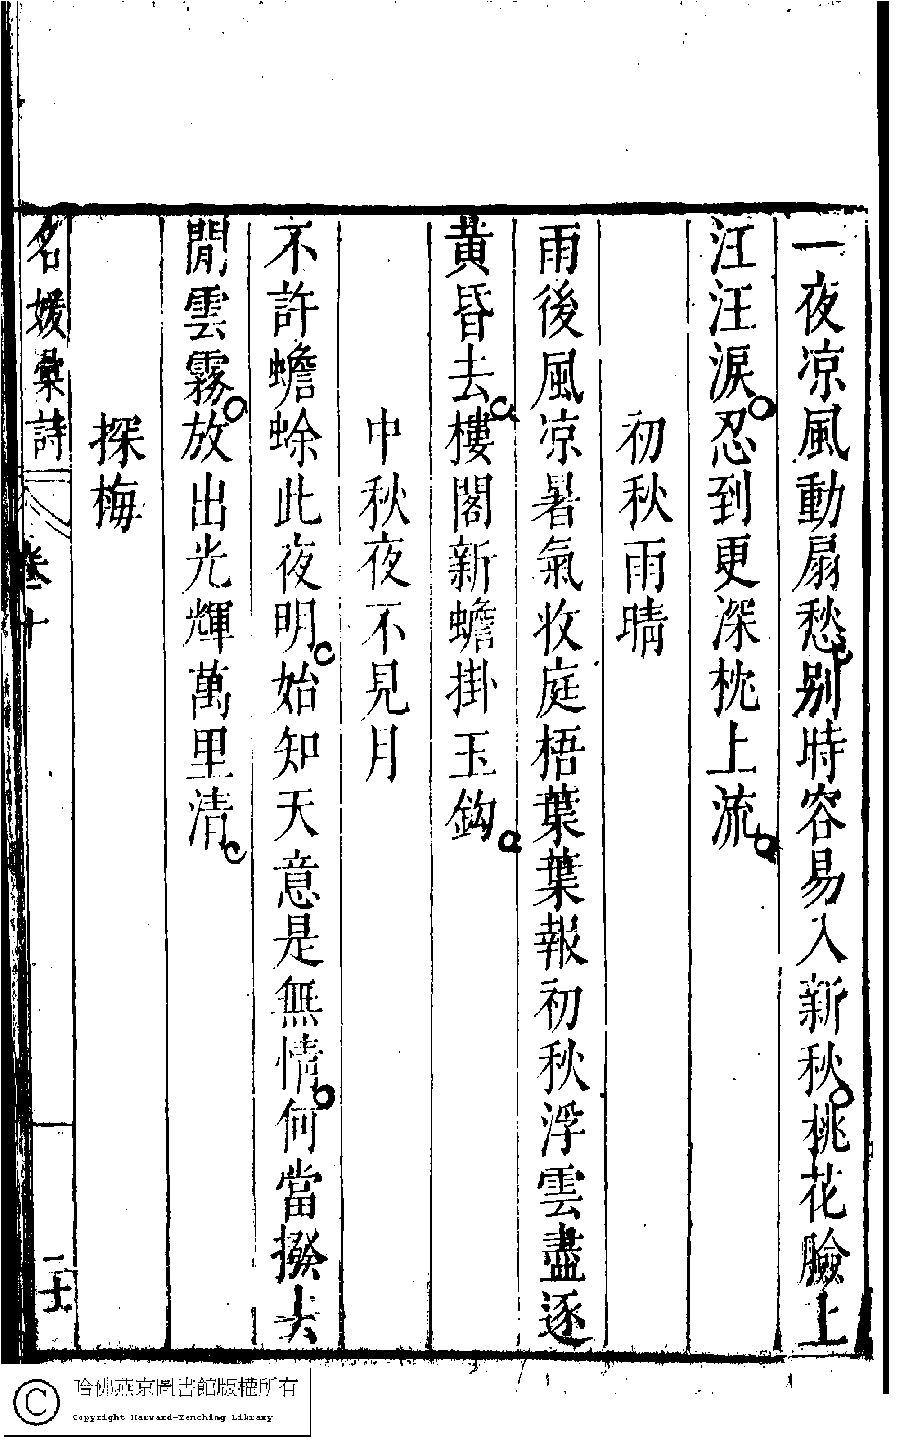 一夜凉風動扇愁別時容易入新秋桃花臉上
汪汪淚忍到更深枕上流
初秋雨晴
雨後風凉暑氣收庭梧葉葉報初秋浮雲盡逐
黃昏去樓閣新蟾掛玉鈎
中秋夜不見月
不許蟾蜍此夜明始知天意是無情何當撥去
閒雲霧放出光輝萬里清
探梅
名媛彙詩
卷十
二十
哈佛燕京圖書館版權所有
Copyright Harvard-Yenching Library